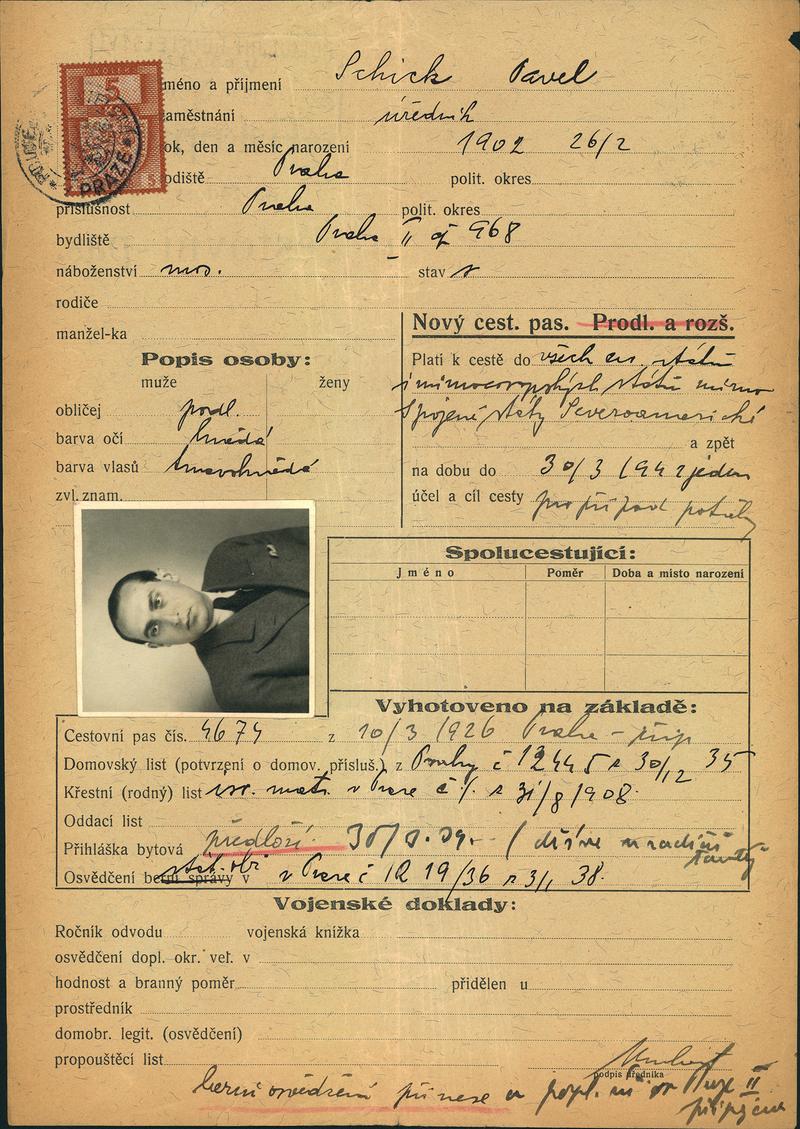 méno a příjmení Schick Pavel
zaměstnání úředník
ok, den a měsíc narození 1902 26/2
odiště Praha polit. okres
příslušnost Praha polit. okres
bydliště Praha II čp 968
náboženství mos. stav s
rodiče
manžel-ka
Nový cest. pas. Prodl. a rozš.
Popis osoby:
muže ženy
obličej podl.
barva očí hnědá
barva vlasů tmavohnědá
zvl. znam.
Platí k cestě do všech ev. států
i mimoevropských států mimo
Spojené státy Severoamerické
a zpět
na dobu do 30/3 1942 jeden
účel a cíl cesty pro případ potřeby
Spolucestující:
Jméno Poměr Doba a místo narození
Vyhotoveno na základě:
Cestovní pas čís. 4674 z 10/3 1926 Praha
Domovský list (potvrzení o domov. přísluš.) z Prahy č 12445 z 30/12 35
Křestní (rodný) list isr. matr. v Praze č /. z 31/8 1908.
Oddací list
Přihláška bytová předloží 39. (dříve u rodičů
tamtéž
Osvědčení berní správy v v Praze č 19/36 z 3/1 38.
Vojenské doklady:
Ročník odvodu vojenská knížka
osvědčení dopl. okr. vel. v
hodnost a branný poměr přidělen u
prostředník
domobr. legit. (osvědčení)
propouštěcí list
podpis úředníka
berní osvědčení přinese a II
PRAZE
5